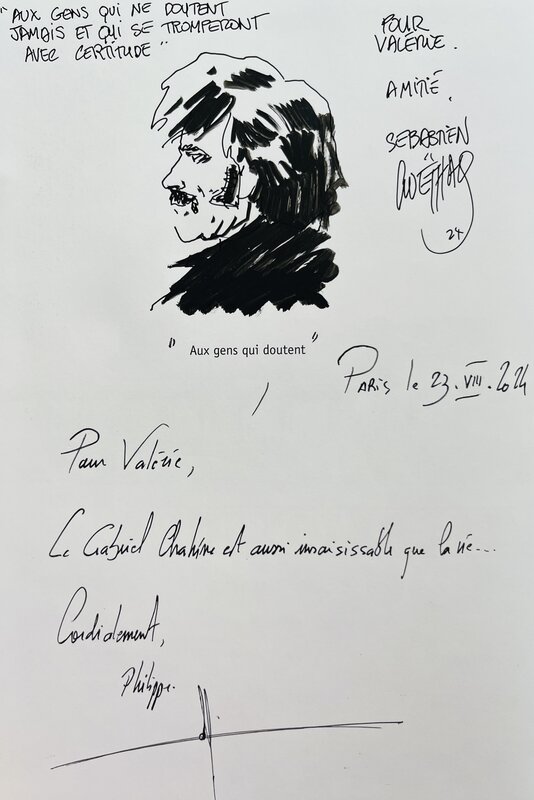 "AUX GENS QUI NE DOUTENT
JAMAIS ET QUI SE TROMPERONT
AVEC CERTITUDE"
POUR
VALÉRIE.
AMITIÉ,
SEBASTIEN
24
"Aux gens qui doutent"
PARIS le 23.VIII.2024
Pour Valérie,
Ce Gabriel est aussi insaisissable que la vie...
Cordialement,
Philippe.